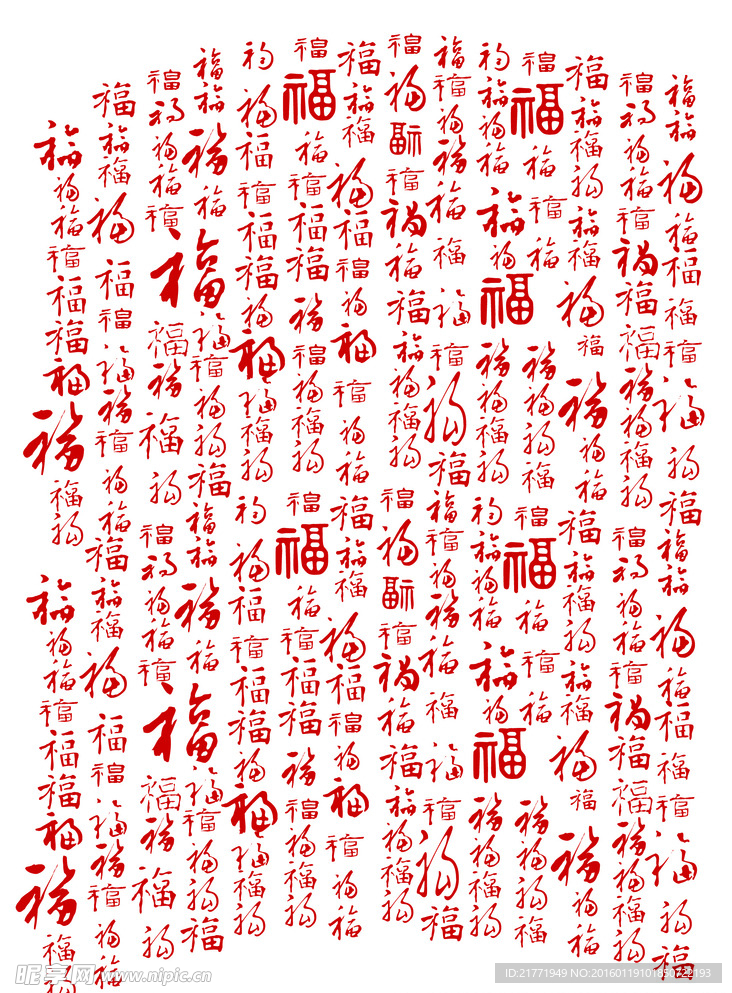 福福福福福福福福福福福福福福福福福福福福
福福福福福福福福福福福福福福福福福福福福福福
福福福福福福福福福福福福福福福福福福福福
福福福福福福福福福福福福福福福福福福福福
福福福福福福福福福福福福福福福福福福福福福福
福福福福福福福福福福福福福福福福福福福福福福
福福福福福福福福福福福福福福福福福福福福福福
福福福福福福福福福福福福福福福福福福福福福福
福福福福福福福福福福福福福福福福福福福福
福福福福福福福福福福福福福福福福福福福福福福
福福福福福福福福福福福福福福福福福福
福福福福福福福福福福福福福福福福福福福福福福
福福福福福福福福福福福福福福福福福福福福福福福福
福福福福福福福福福福福福福福福福福福福福
昵享网 www.nipic.cn
ID:21771949 NO:20160119101850722193